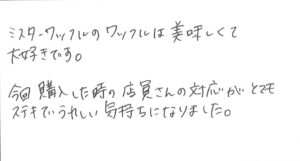 ミスターワッフルのワッフルは美味しくて
大好きです。
今回購入した時の店員さんの対応がとても
ステキでうれしい気持ちになりました。